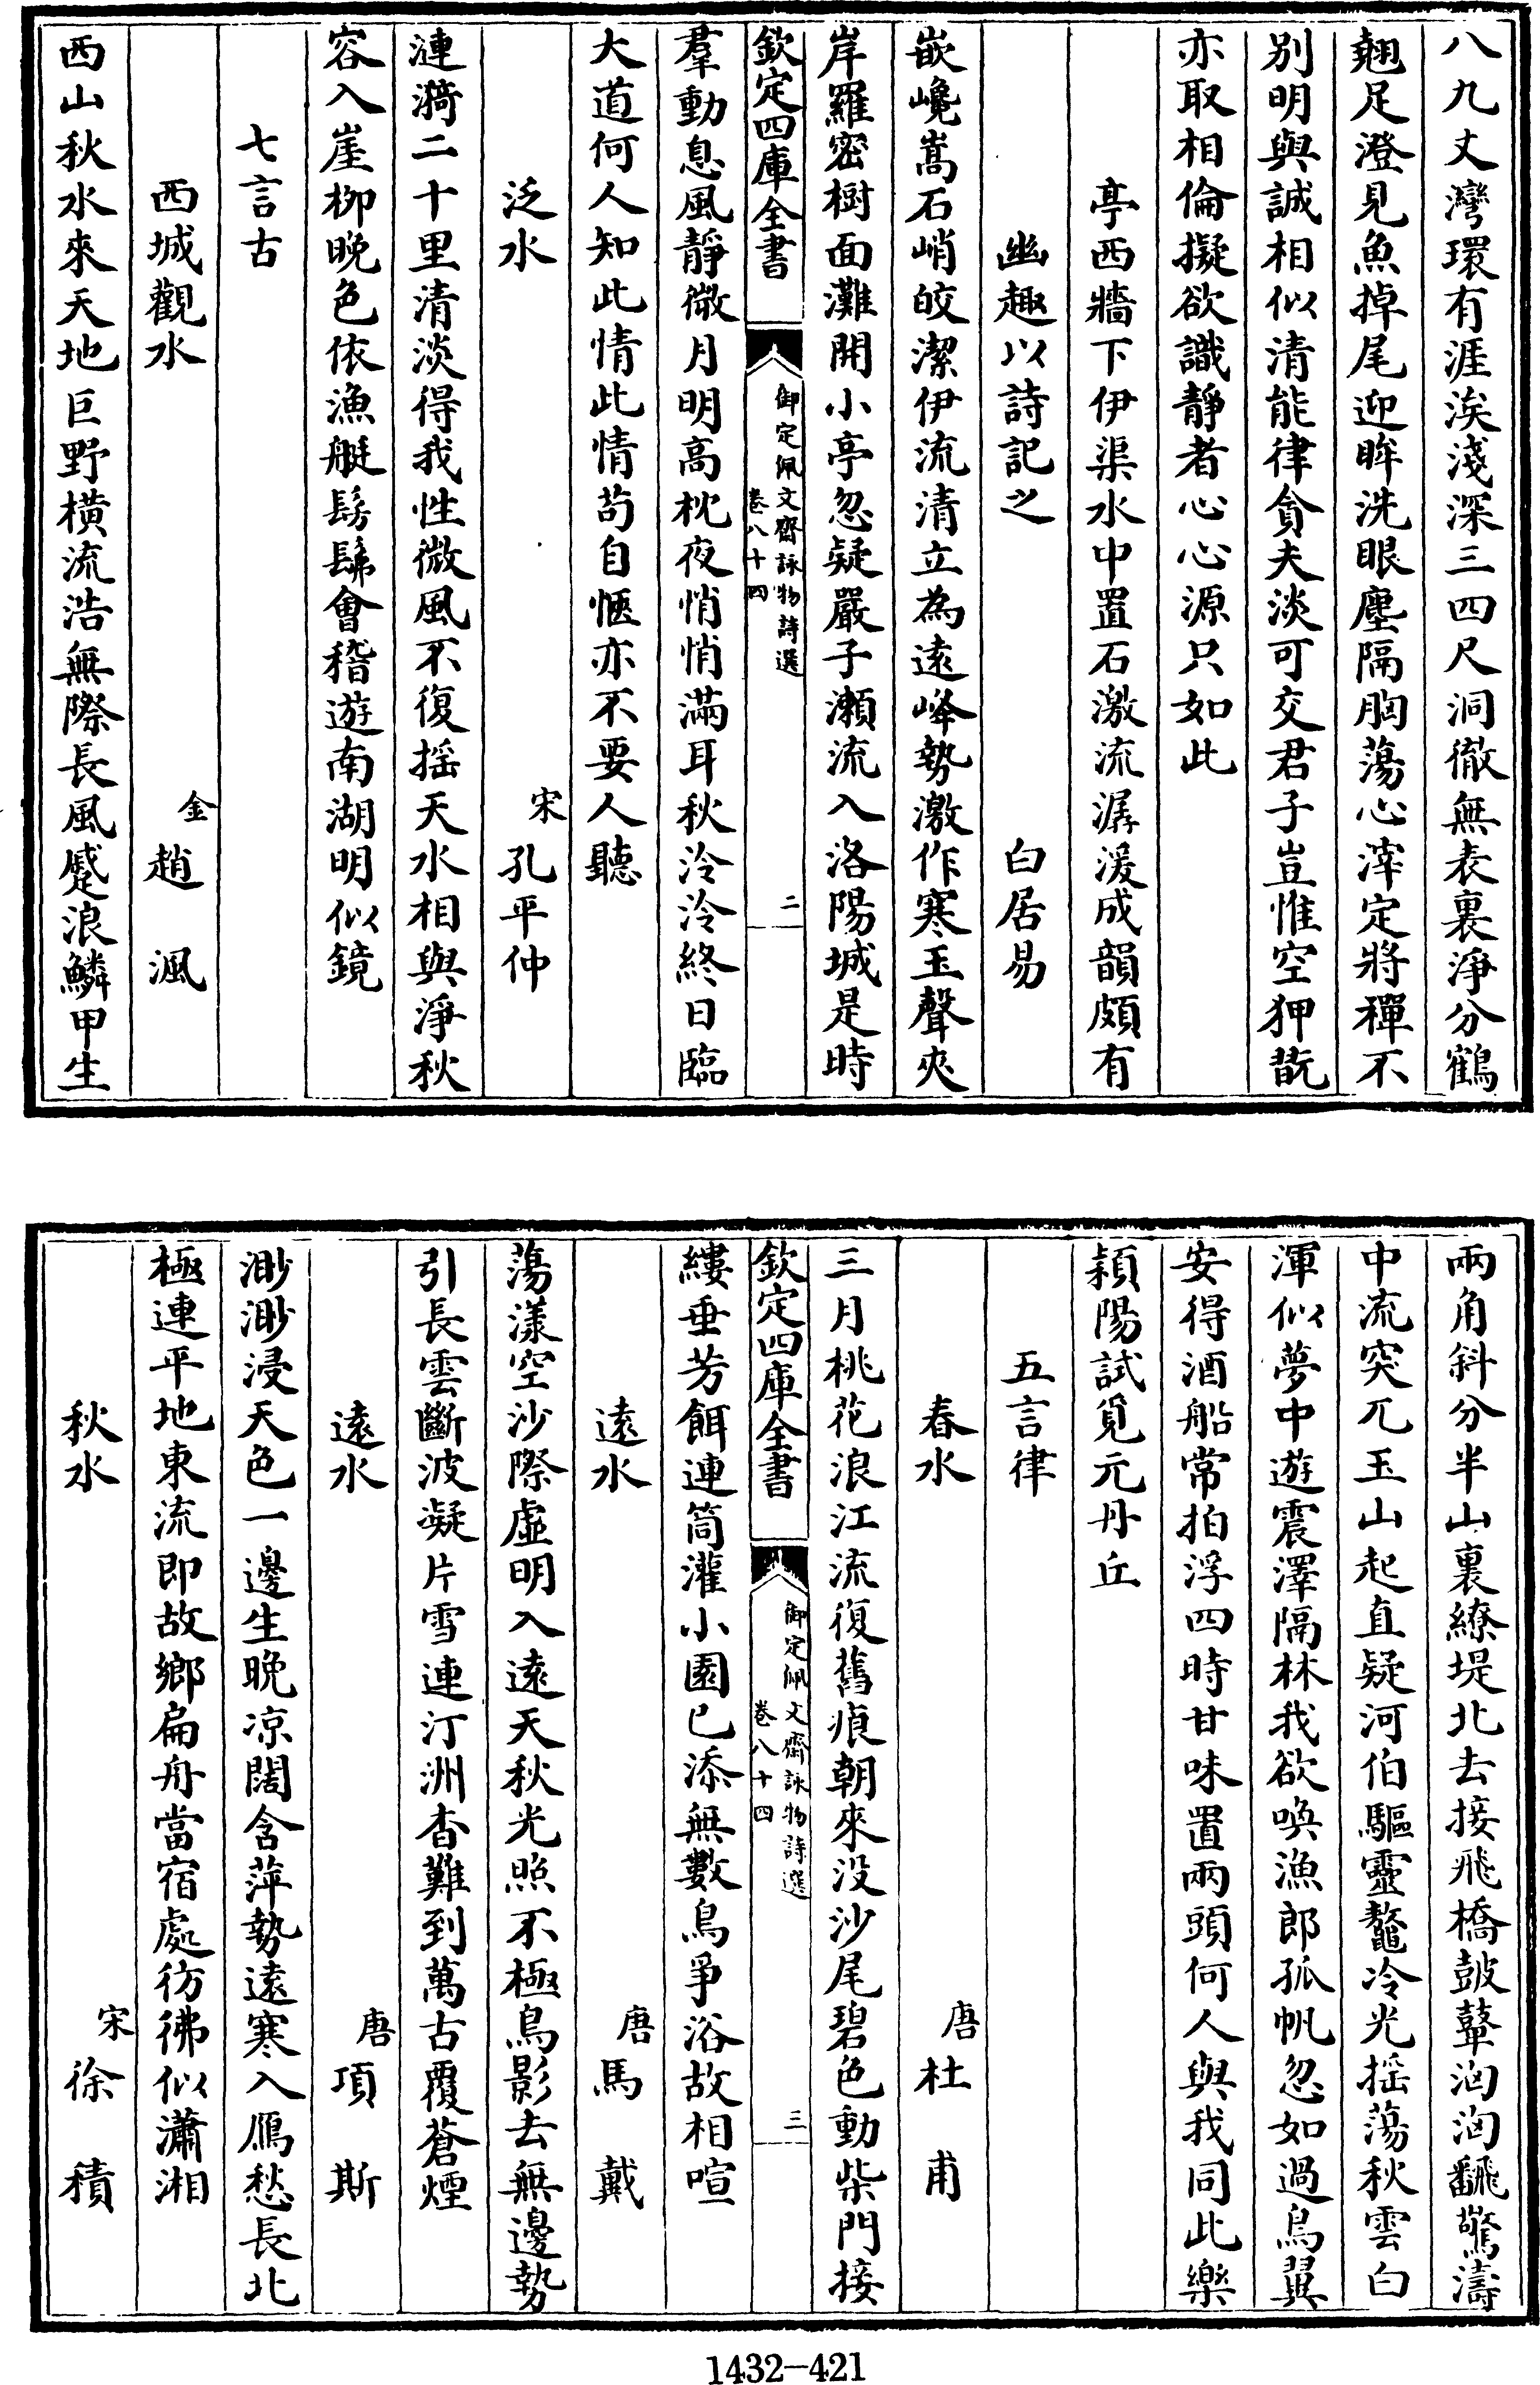 八九丈灣環有涯涘淺深三四尺洞徹無表裏淨分鶴
翹足澄見魚掉尾迎眸洗眼塵隔胸蕩心滓定將禪不
別明與誠相似清能律貪夫淡可交君子豈惟空狎翫
亦取相倫擬欲識靜者心心源只如此
亭西牆下伊渠水中置石激流潺湲成韻頗有
幽趣以詩記之
白居易
嵌巉嵩石峭皎潔伊流清立為遠峰勢激作寒玉聲夾
岸羅密樹面灘開小亭忽疑嚴子瀨流入洛陽城是時
欽定四庫全書
御定佩文齋詠物詩選
卷八十四
二
羣動息風靜微月明高枕夜悄悄滿耳秋泠泠終日臨
大道何人知此情此情苟自愜亦不要人聽
泛水
宋孔平仲
漣漪二十里清淡得我性微風不復摇天水相與淨秋
容入崖柳晚色依漁艇髣髴會稽遊南湖明似鏡
七言古
西城觀水
金趙渢
西山秋水來天地巨野橫流浩無際長風蹙浪鱗甲生
兩角斜分半山裏繚堤北去接飛橋鼓鼙洶洶翻驚濤
中流突兀玉山起直疑河伯驅靈鼇冷光摇蕩秋雲白
渾似夢中遊震澤隔林我欲喚漁郎孤帆忽如過鳥翼
安得酒船常拍浮四時甘味置兩頭何人與我同此樂
潁陽試覓元丹丘
五言律
春水
唐杜甫
三月桃花浪江流復舊痕朝來没沙尾碧色動柴門接
欽定四庫全書
御定佩文齋詠物詩選
卷八十四
三
縷垂芳餌連筒灌小園已添無數鳥爭浴故相喧
遠水
唐馬戴
蕩漾空沙際虛明入遠天秋光照不極鳥影去無邊勢
引長雲斷波凝片雪連汀洲杳難到萬古覆蒼煙
遠水
唐項斯
渺渺浸天色一邊生晚凉闊含萍勢遠寒入鴈愁長北
極連平地東流即故鄉扁舟當宿處彷彿似瀟湘
秋水
宋徐積
1432-421